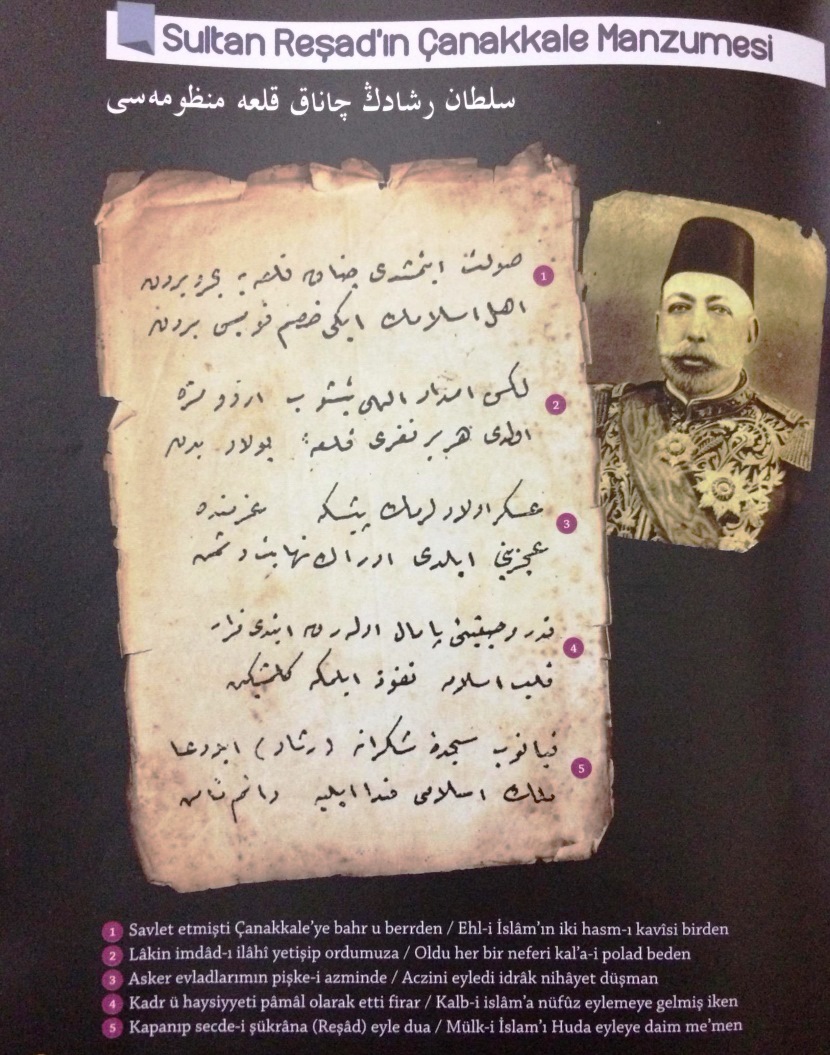 Sultan Reşad'ın Çanakkale Manzumesi
سلطان رشادڭ چاناق قلعه منظومه‌سی
صولت ایتمشدی چناق قلعه‌یه بحر و بردن
1
اهل اسلامك ایكی خصم قویسی بردن
لكن امداد الهی یتیشوب اردومزه
2
اولدی هر بر نفری قلعهٔ پولاد بدن
عسكر اولادلرمك پیشكه عزمنده
3
عجزینی ایلدی ادراك نهایت دشمن
قدر و حیثیتی پامال اوله‌رق ایتدی فرار
4
قلب اسلامه نفوذ ایلمكه كلمشیكن
قپانوب سجدهٔ شكرانه (رشاد) ایله دعا
5
ملك اسلامی خدا ایلیه دائم مأمن
1 Savlet etmişti Çanakkale'ye bahr u berrden / Ehl-i İslâm'ın iki hasm-ı kavîsi birden
2 Lâkin imdâd-ı ilâhî yetişip ordumuza / Oldu her bir neferi kal'a-i polad beden
3 Asker evladlarımın pişke-i azminde / Aczini eyledi idrâk nihâyet düşman
4 Kadr ü haysiyyeti pâmâl olarak etti firar / Kalb-i islâm'a nüfûz eylemeye gelmiş iken
5 Kapanıp secde-i şükrâna (Reşâd) eyle dua / Mülk-i İslam'ı Huda eyleye daim me'men